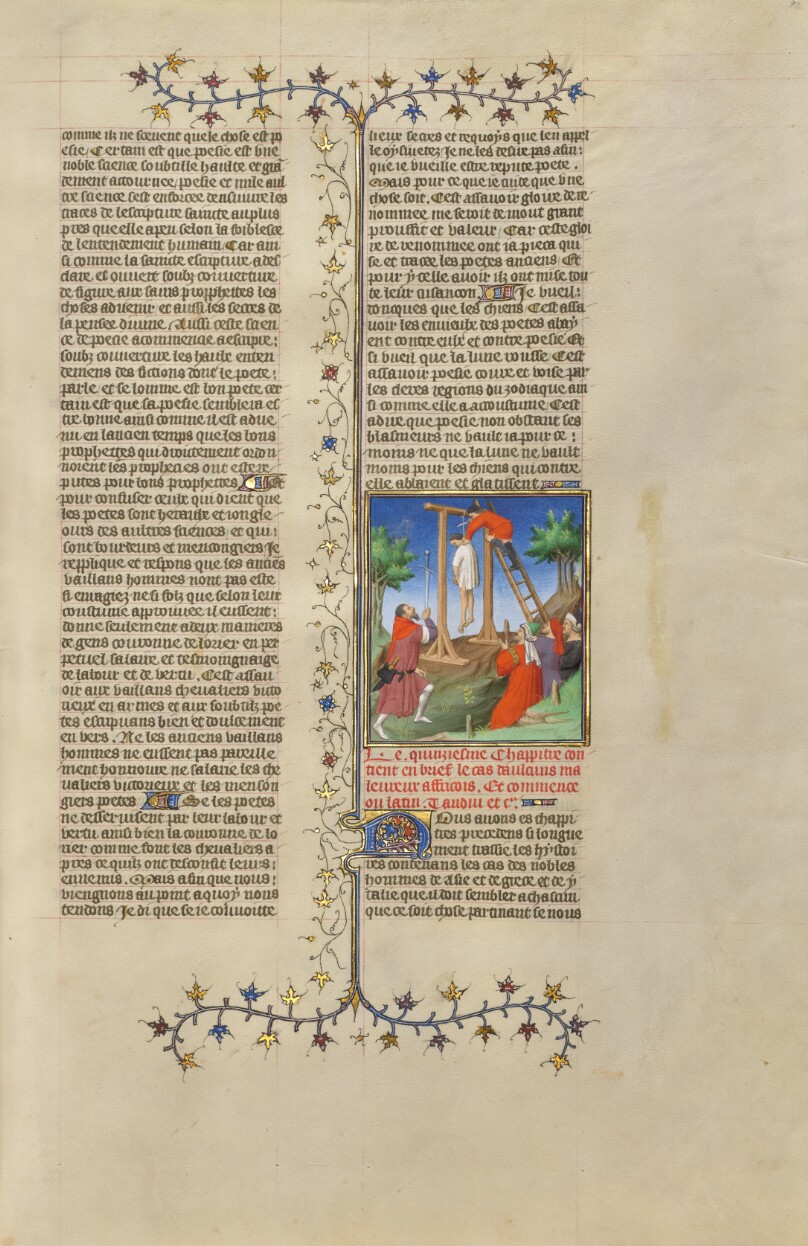 comme ilz ne scevent quele chose est po
esie / Certain est que poesie est une
noble science soubtille haulte et gran
dement atournee / poesie et nule aul
tre science sest enforcee densuivre les
traces de lescripture saincte au plus
pres que elle a peu selon la foiblesse
de lentendement humain / Car ain
si comme la saincte escripture a des
claré et ouvert soubz couverture
de figure aux sains prophettes les
choses advenir et aussi les secres de
la pensee divine / Aussi ceste scien
ce de poesie a commence a escripre
soubz couverture les haulx enten
demens des fictions dont le poete
parle et se lomme est bon poete cer
tain est que sa poesie semblera es
tre bonne ainsi comme il est adve
nu en lancien temps que les bons
prophettes qui droictement ordon
noient les prophecies ont este re
putes pour bons prophettes Et
pour confuser ceulx qui dient que
les poetes sont heraulx et iongle
ours des aultres sciences et qui
sont bourdeurs et mencongiers Je
replique et respons que les anciens
vaillans hommes nont pas este
si enragiez ne si folz que selon leur
coustume approuvee ilz eussent
donne seulement a deux manieres
de gens couronne de lorier en per
petuel salaire et tesmoignaige
de labour et de vertu . Cest assav
oir aux vaillans chevaliers victo
rieux en armes et aux soubtilz poe
tes escripvans bien et doulcement
en vers . Ne les anciens vaillans
hommes ne eussent pas pareille
ment honnoure ne salarie les che
valiers victorieux et les mencon
giers poetes Se les poetes
ne desservissent par leur labour et
vertu aussi bien la couronne de lo
rier comme font les chevaliers a
pres ce quilz ont desconfit leurs
ennemis . Mais afin que nous
viengnons au point a quoy nous
tendons Je di que se ie convoitte
lieux secres et requoys que len appel
le oysivetez Je ne les desire pas afin
que ie vueille estre repute poete .
Mais pour ce que ie cuide que une
chose soit . Cest assavoir gloire de re
nommee me seroit de mout grant
prouffit et valeur / Car ceste gloi
re de renommee ont ia pieca qui
se et tracee les poetes anciens Et
pour ycelle avoir ilz ont mise tou
te leur cusancon Je vueil
doncques que les chiens Cest assa
voir les envieux des poetes abay
ent contre eulx et contre poesie Et
si vueil que la lune cousse Cest
assavoir poesie coure et voise par
les cleres regions du zodiaque ain
si comme elle a acoustume Cest
a dire que poesie non obstant ses
blasmeurs ne vault ia pour ce
moins ne que la lune ne vault
moins pour les chiens qui contre
elle abaient et glatissent
Le . quinziesme Chappitre con
tient en brief le cas daulcuns ma
leureux affricois . Et commence
ou latin : Taudiu et c.
Nous avons es chappi
tres precedens si longue
ment trassie les hystoi
res contenans les cas des nobles
hommes de asie et de grece et de y
talie que il doit sembler a chascun
que ce soit chose partinant se nous